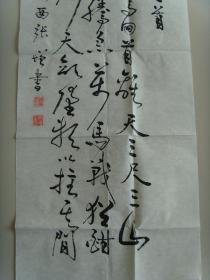 首
回首離天三尺三山
騰急萬馬戰猶酣
天欲墮賴以拄其間
西張書